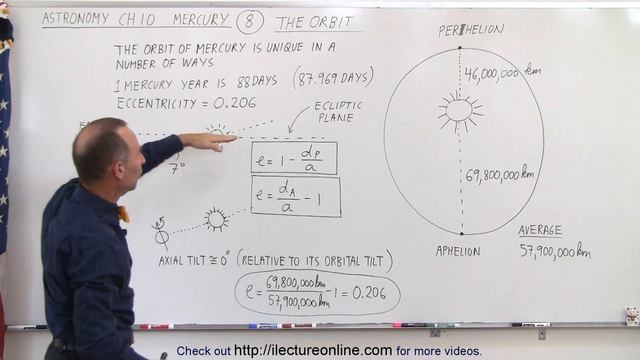 ASTRONOMY CH 10 MERCURY 8 THE ORBIT
THE ORBIT OF MERCURY IS UNIQUE IN A
NUMBER OF WAYS
1 MERCURY YEAR IS 88 DAYS (87.969 DAYS)
ECCENTRICITY = 0.206
ECLIPTIC
PLANE
7°
e = 1 - dP/a
e = dA/a - 1
AXIAL TILT ≅ 0° (RELATIVE TO ITS ORBITAL TILT)
e = 69,800,000 km/57,900,000 km - 1 = 0.206
PERIHELION
46,000,000 km
69,800,000 km
APHELION
AVERAGE
57,900,000 km
Check out http://ilectureonline.com for more videos.